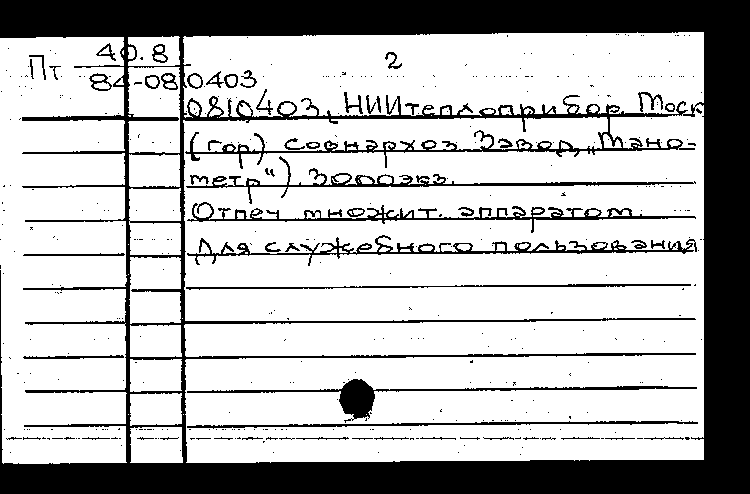 Пт 40.8 2
84-08.0403
0810403, НИИтеплоприбор. Моск
(гор.) совнархоз Завод „Мано-
метр"). 3000экз.
Отпеч множит. аппаратом.
Для служебного пользования